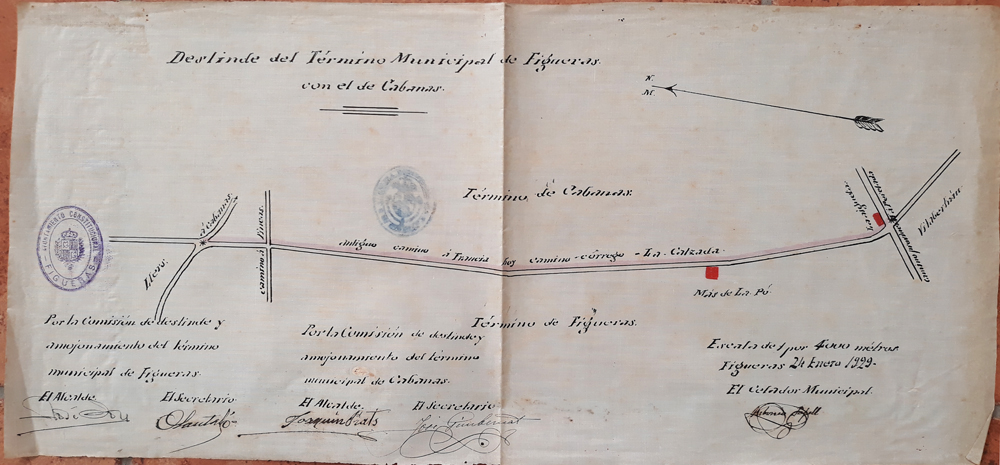 Deslinde del Término Municipal de Figueras.
con el de Cabanas.
N.
M.
Término de Cabanas.
á Cabanas.
Llers.
camino á Liners.
antiguo camino á Francia hoy camino-córrego-La Calzada
Peralada
Vilabertrán
Mas de La Pó
AYUNTAMIENTO CONSTITUCIONAL
FIGUERAS
Término de Figueras.
Por la Comisión de deslinde y
amojonamiento del término
municipal de Figueras.
El Alcalde. El Secretario
Por la Comisión de deslinde y
amojonamiento del término
municipal de Cabanas.
El Alcalde. El Secretario
Joaquin Prats
Escala de 1 por 4000 métros
Figueras 24 Enero 1929.
El Celador Municipal.